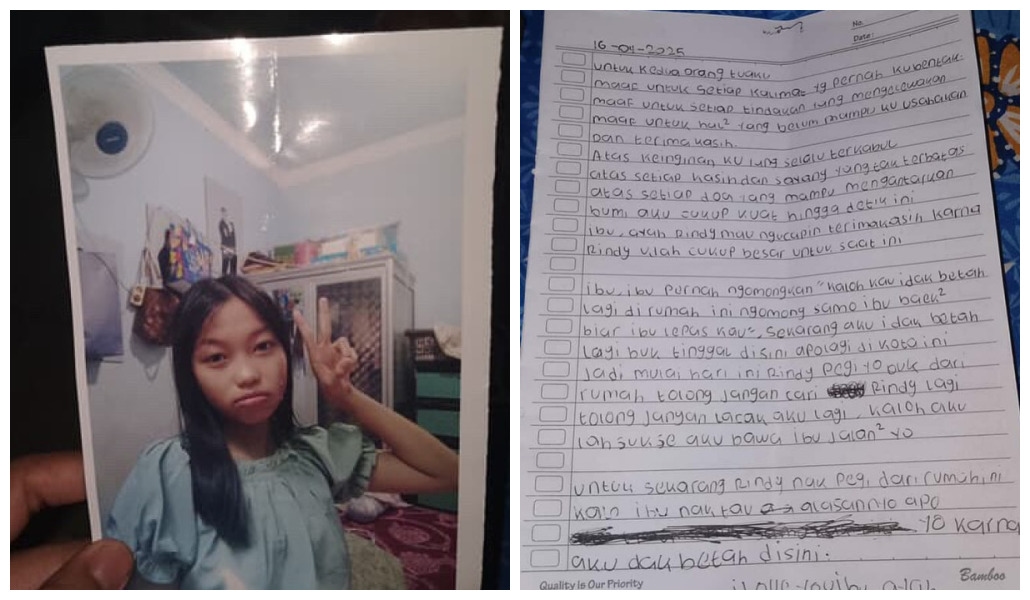 No.
Date:
16-04-2025
untuk kedua orang tuaku
maaf untuk setiap kalimat yg pernah kubentak.
maaf untuk setiap tindakan yang mengecewakan
maaf untuk hal² yang belum mampu ku usahakan
Dan terimakasih.
Atas keinginan ku yang selalu terkabul
atas setiap kasih dan sayang yang tak terbatas
atas setiap doa yang mampu mengantarkan
bumi aku cukup kuat hingga detik ini
ibu, ayah Rindy mau ngucapin terimakasih karna
Rindy udah cukup besar untuk saat ini
ibu, ibu pernah ngomongkan "kaloh kau idak betah
lagi di rumah ini ngomong samo ibu baek²
biar ibu lepas kau", sekarang aku idak betah
lagi buk tinggal disini apolagi di kota ini
Jadi mulai hari ini Rindy pegi yo buk dari
rumah tolong jangan cari Rindy lagi
tolong jangan lacak aku lagi, kaloh aku
lah sukse aku bawa ibu jalan² yo
untuk sekarang Rindy nak pegi dari rumah ini
kalo ibu nak tau alasannyo apo
yo karna
aku dak betah disini.
Quality is Our Priority
Bamboo